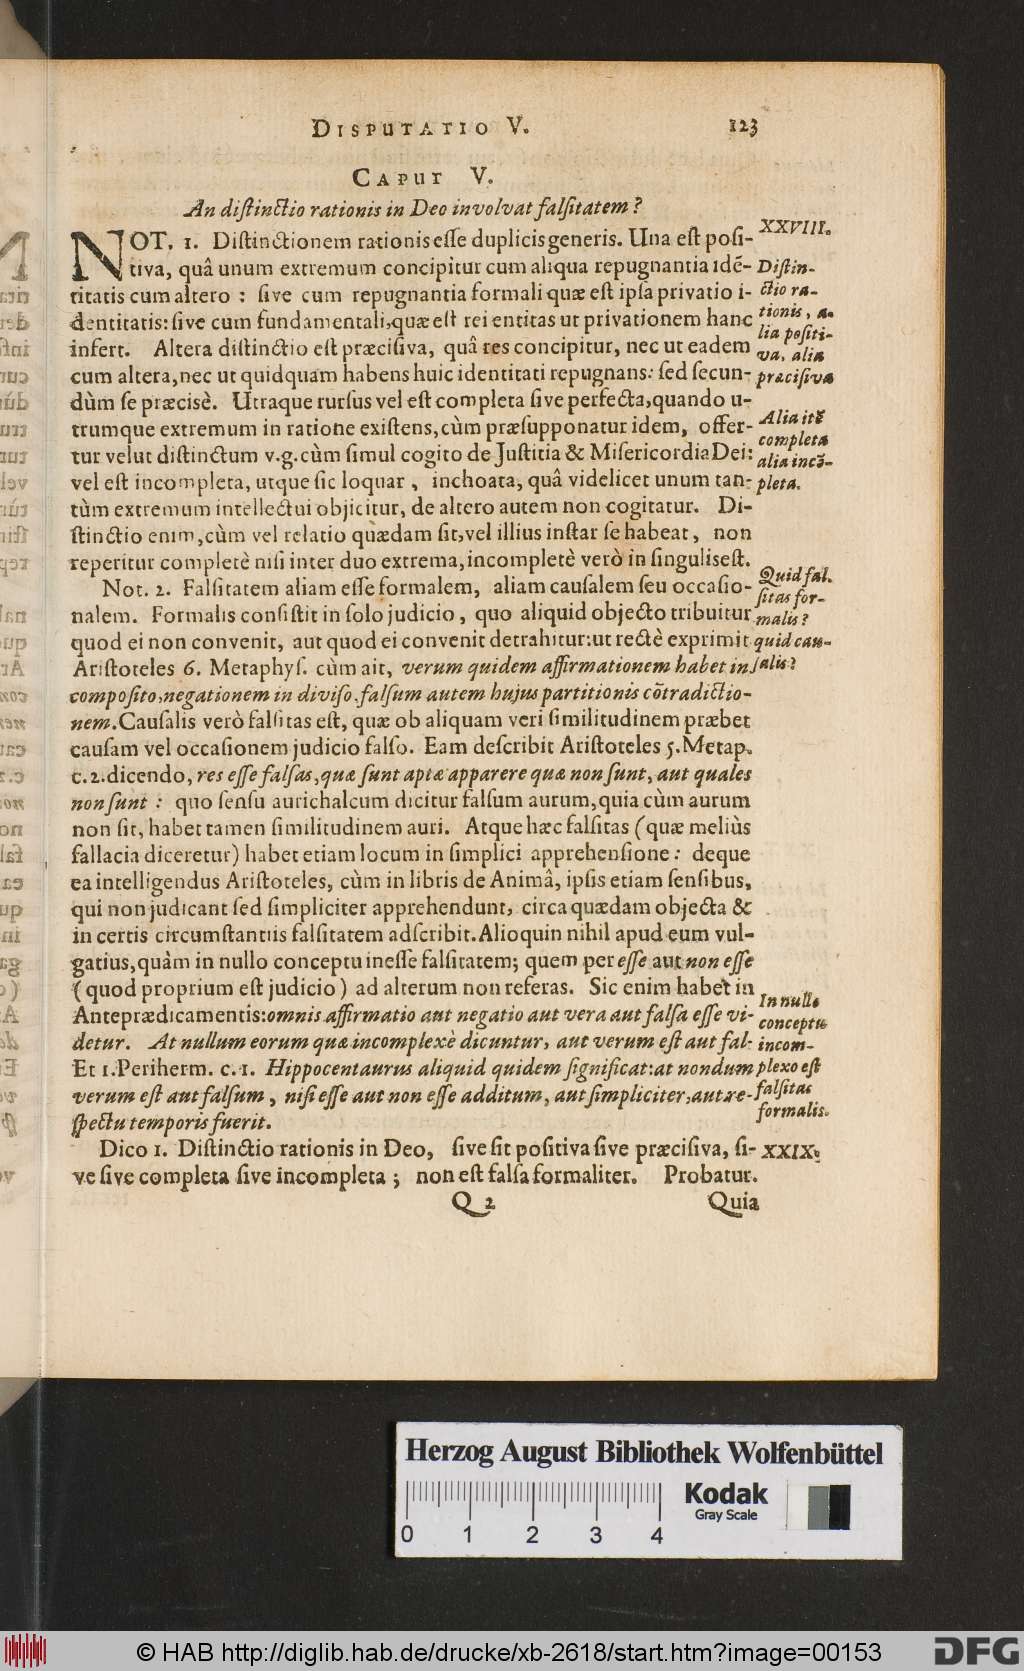 DISPUTATIO V. 123
CAPUT V.
An distinctio rationis in Deo involvat falsitatem?
NOT. 1. Distinctionem rationis esse duplicis generis. Una est posi-
tiva, quâ unum extremum concipitur cum aliqua repugnantia idẽ-
titatis cum altero : sive cum repugnantia formali quæ est ipsa privatio i-
dentitatis: sive cum fundamentali, quæ est rei entitas ut privationem hanc
infert. Altera distinctio est præcisiva, quâ res concipitur, nec ut eadem
cum altera, nec ut quidquam habens huic identitati repugnans: sed secun-
dùm se præcisè. Utraque rursus vel est completa sive perfecta, quando u-
trumque extremum in ratione existens, cùm præsupponatur idem, offer-
tur velut distinctum v.g. cùm simul cogito de Justitia & Misericordia Dei:
vel est incompleta, utque sic loquar, inchoata, quâ videlicet unum tan-
tùm extremum intellectui objicitur, de altero autem non cogitatur. Di-
stinctio enim, cùm vel relatio quædam sit, vel illius instar se habeat, non
reperitur completè nisi inter duo extrema, incompletè verò in singulis est.
Not. 2. Falsitatem aliam esse formalem, aliam causalem seu occasio-
nalem. Formalis consistit in solo judicio, quo aliquid objecto tribuitur
quod ei non convenit, aut quod ei convenit detrahitur: ut rectè exprimit
Aristoteles 6. Metaphys. cùm ait, verum quidem affirmationem habet in
composito, negationem in diviso. falsum autem hujus partitionis cõtradictio-
nem. Causalis verò falsitas est, quæ ob aliquam veri similitudinem præbet
causam vel occasionem judicio falso. Eam describit Aristoteles 5. Metap.
c. 2. dicendo, res esse falsas, quæ sunt aptæ apparere quæ non sunt, aut quales
non sunt : quo sensu aurichalcum dicitur falsum aurum, quia cùm aurum
non sit, habet tamen similitudinem auri. Atque hæc falsitas (quæ meliùs
fallacia diceretur) habet etiam locum in simplici apprehensione : deque
ea intelligendus Aristoteles, cùm in libris de Animâ, ipsis etiam sensibus,
qui non judicant sed simpliciter apprehendunt, circa quædam objecta &
in certis circumstantiis falsitatem adscribit. Alioquin nihil apud eum vul-
gatius, quàm in nullo conceptu inesse falsitatem; quem per esse aut non esse
(quod proprium est judicio) ad alterum non referas. Sic enim habet in
Anteprædicamentis: omnis affirmatio aut negatio aut vera aut falsa esse vi-
detur. At nullum eorum quæ incomplexè dicuntur, aut verum est aut fal-
Et 1. Periherm. c. 1. Hippocentaurus aliquid quidem significat: at nondum
verum est aut falsum, nisi esse aut non esse additum, aut simpliciter, aut re-
spectu temporis fuerit.
Dico 1. Distinctio rationis in Deo, sive sit positiva sive præcisiva, si-
ve sive completa sive incompleta ; non est falsa formaliter. Probatur.
Q 2 Quia
XXVIII.
Distin-
ctio ra-
tionis, a-
lia positi-
va, alia
præcisiva
Alia itẽ
completa
alia incõ-
pleta.
Quid fal-
sitas for-
malis?
quid cau-
salis?
In nullo
conceptu
incom-
plexo est
falsitas
formalis.
XXIX.
Herzog August Bibliothek Wolfenbüttel
Kodak
Gray Scale
0 1 2 3 4
© HAB http://diglib.hab.de/drucke/xb-2618/start.htm?image=00153
DFG